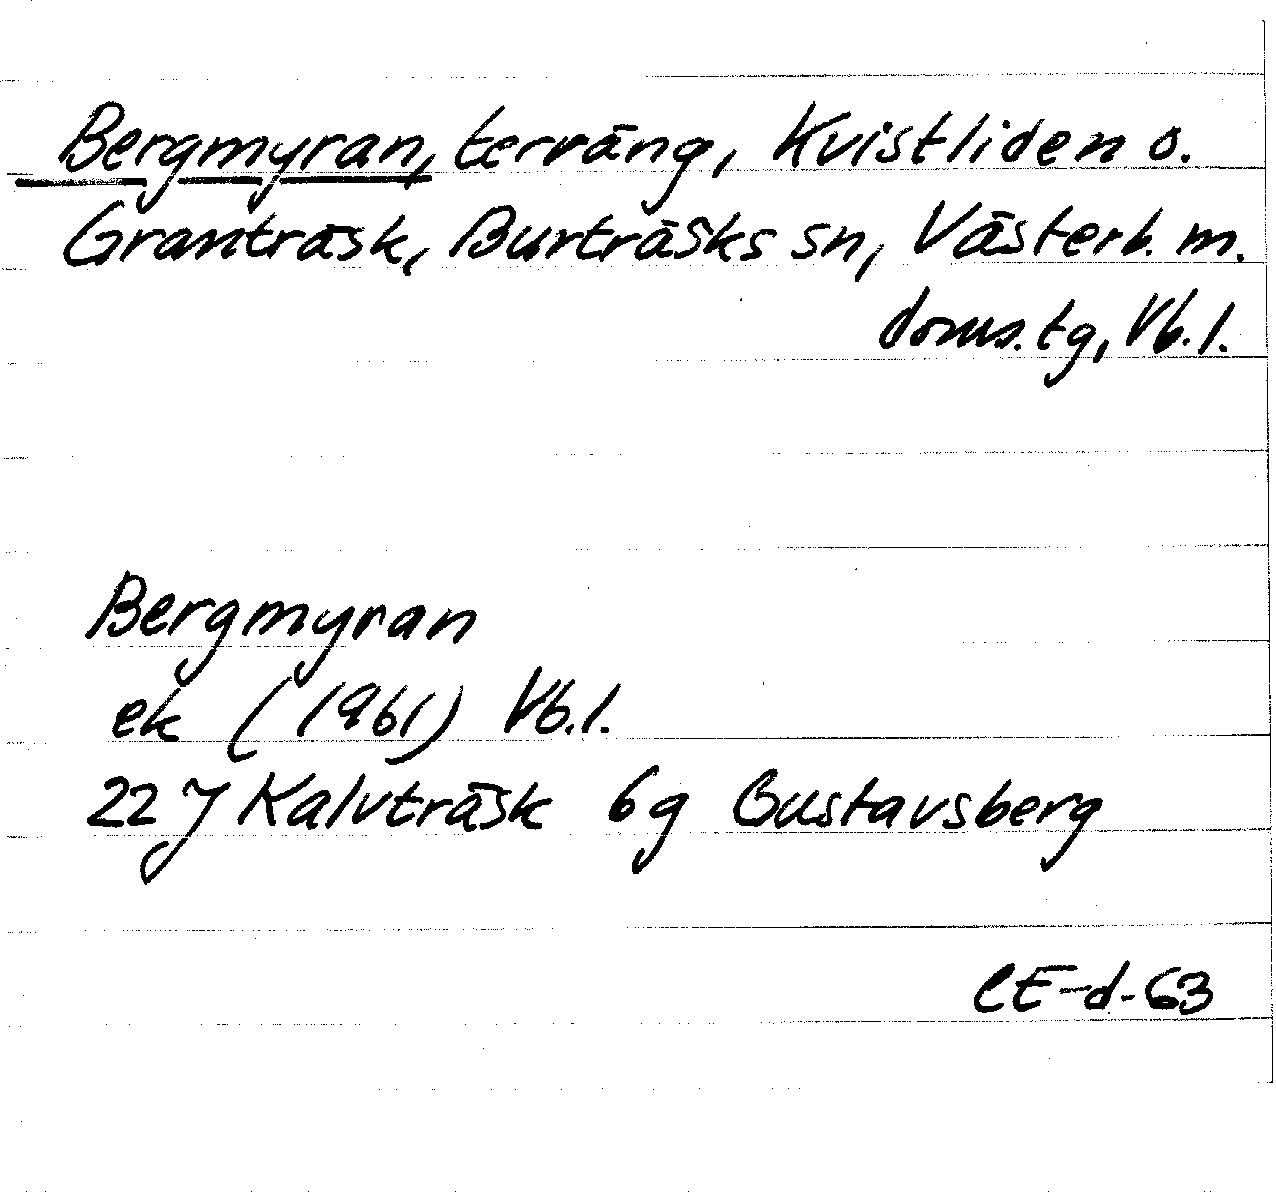 Bergmyran, terräng, Kvistliden o.
Granträsk, Burträsks sn, Västerb. m.
doms.tg, Vb.l.
Bergmyran
ek (1961) Vb.l.
22 J Kalvträsk 6g Gustavsberg
CE-d-63